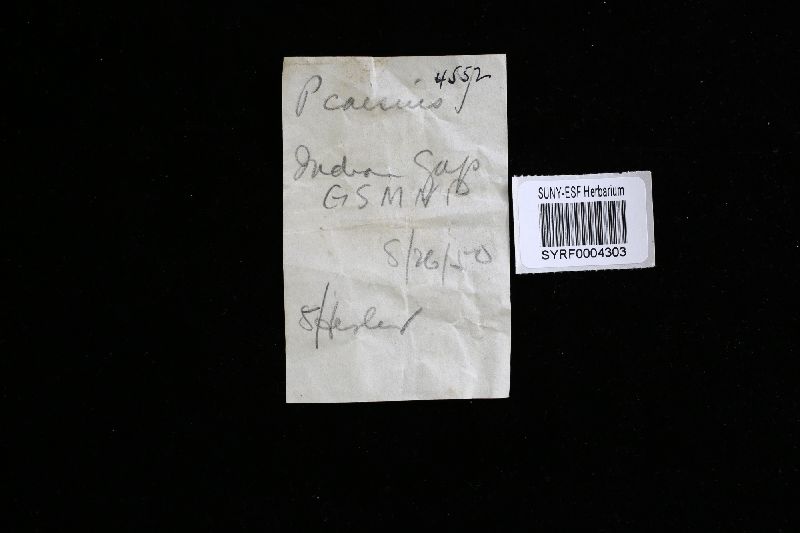 4552
P caesius
Indian Gap
GSMNP
8/26/50
Hesler
SUNY-ESF Herbarium
SYRF0004303